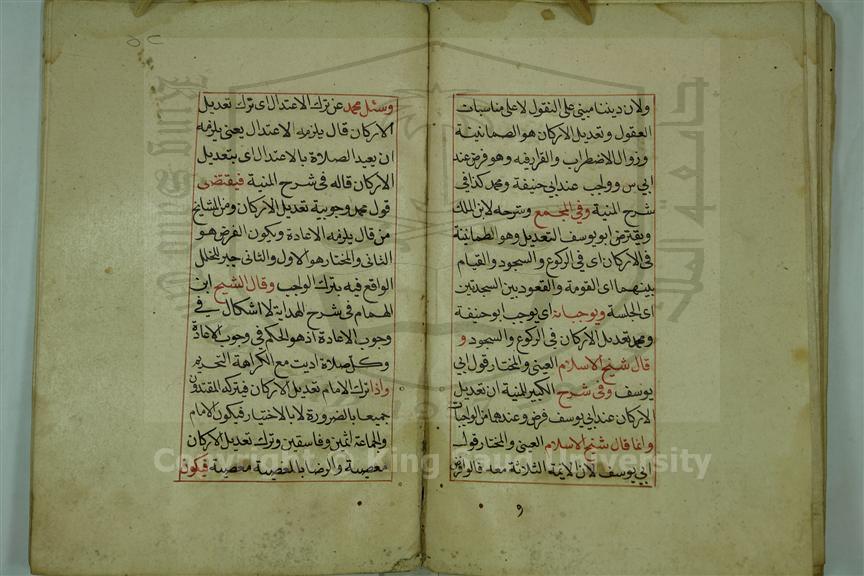 ولان ديننا مبني على النقول لا على مناسبات
العقول وتعديل الاركان هو الطمانينة
وزوال الاضطراب والقرار فيه وهو فرض عند
ابي س وواجب عند ابي حنيفة ومحمد كذا في
شرح المنية وفي المجمع وشرحه لابن الملك
ويفترض ابو يوسف التعديل وهو الطمانينة
في الاركان اى في الركوع والسجود والقيام
بينهما اى القومة والقعود بين السجدتين
اى الجلسة ويوجبانه اى يوجب ابو حنيفة
ومحمد تعديل الاركان في الركوع والسجود و
قال شيخ الاسلام العينى والمختار قول ابى
يوسف وفى شرح الكبير المنية ان تعديل
الاركان عند ابى يوسف فرض وعندهما من الواجبات
وانما قال شيخ الاسلام العينى والمختار قول
ابى يوسف لان الايمة الثلاثة معه قالوا
وسئل محمد عن ترك الاعتدال اى ترك تعديل
الاركان قال يلزمه الاعتدال يعنى يلزمه
ان يعيد الصلاة بالاعتدال اى بتعديل
الاركان قاله في شرح المنية فيقتضى
قول محمد وجوبية تعديل الاركان ومن المشايخ
من قال يلزمه الاعادة ويكون الفرض هو
الثانى والمختار هو الاول والثانى جبر للخلل
الواقع فيه بترك الواجب وقال الشيخ ابن
الهمام في شرح الهداية لا اشكال في
وجوب الاعادة اذ هو الحكم في وجوب الاعادة
وكل صلاة اديت مع الكراهة التحريم
واذا ترك الامام تعديل الاركان فيتركه المقتدون
جميعا بالضرورة لا بالاختيار فيكون الامام
والجماعة اثمين وفاسقين وترك تعديل الاركان
معصية والرضا بالمعصية معصية فيكون
Copyright © King Saud University
جامعة الملك